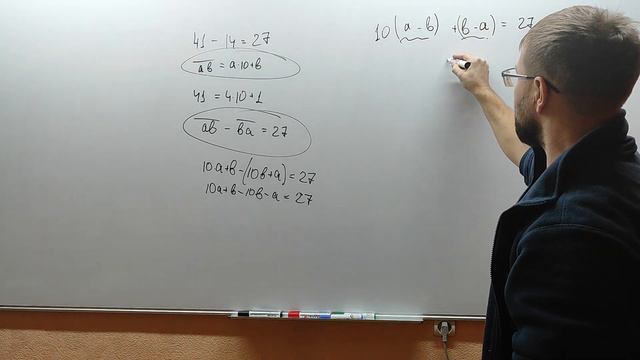 41 - 14 = 27
ab = a·10+b
41 = 4·10+1
ab - ba = 27
10a+b-(10b+a)=27
10a+b-10b-a=27
10(a-b) +(b-a) = 27